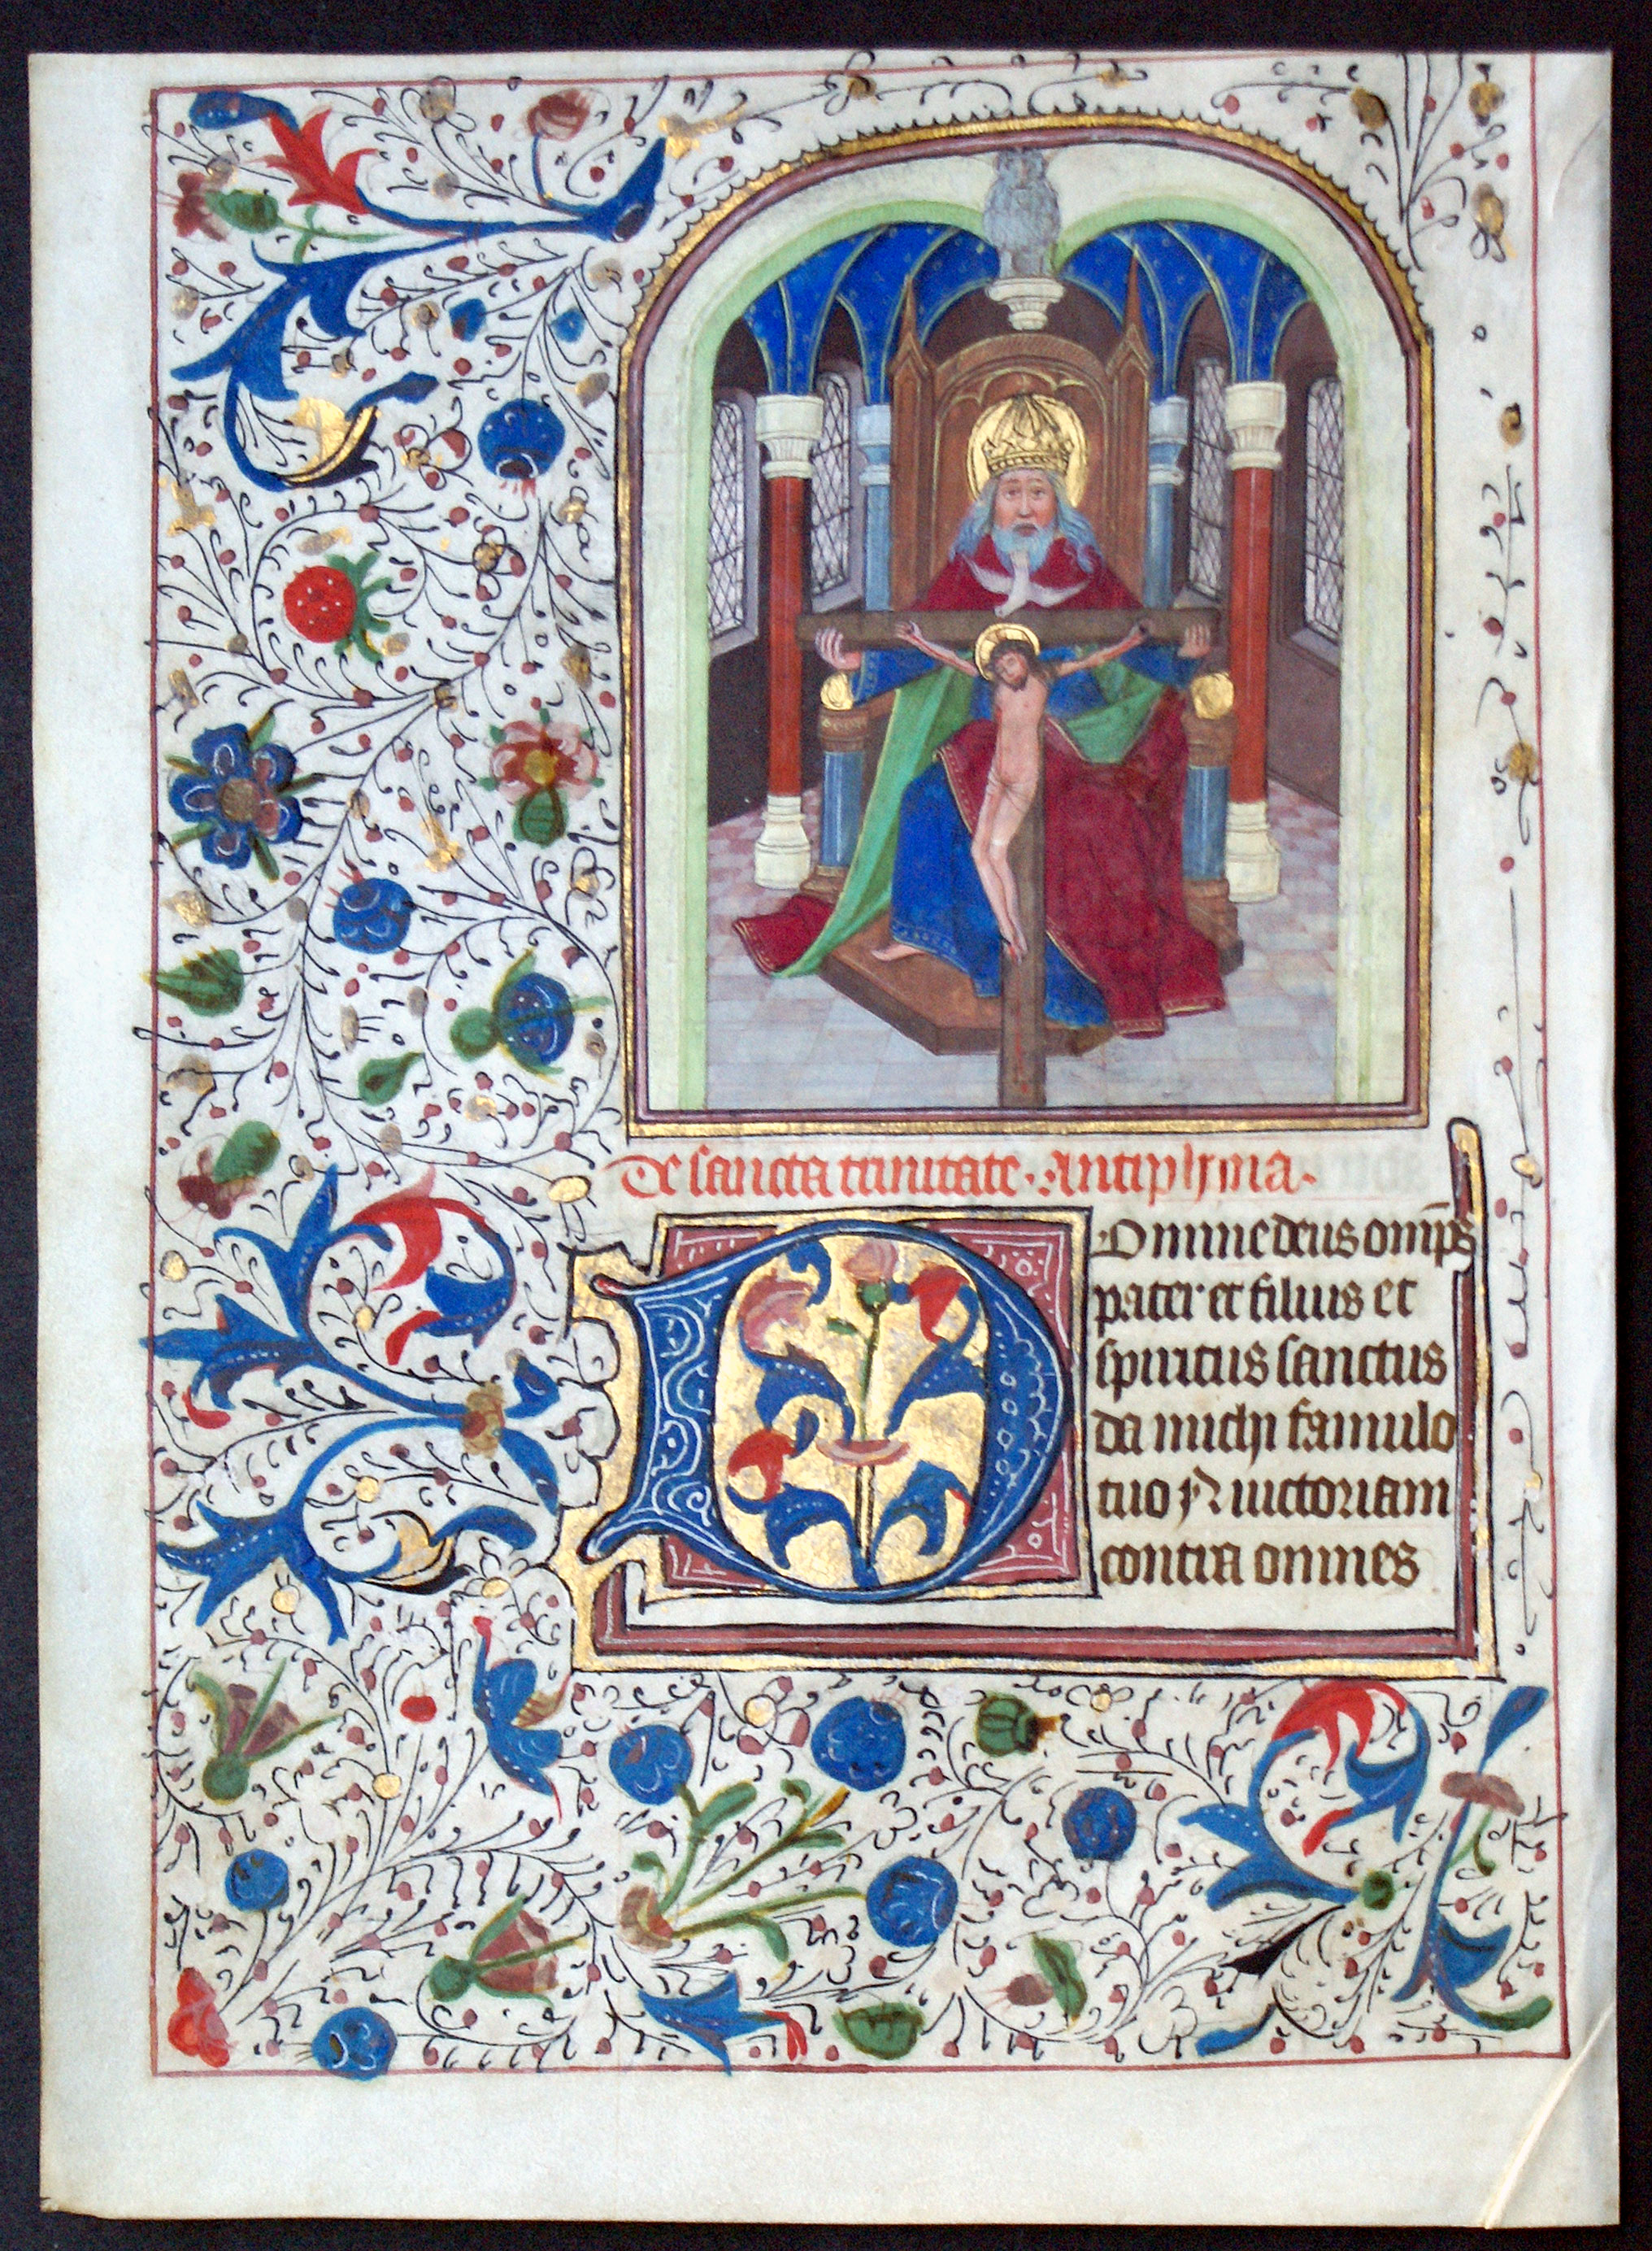 De sancta trinitate. Antiphona.
Domine deus omp̄s
pater et filius et
spiritus sanctus
da michi famulo
tuo N victoriam
contra omnes